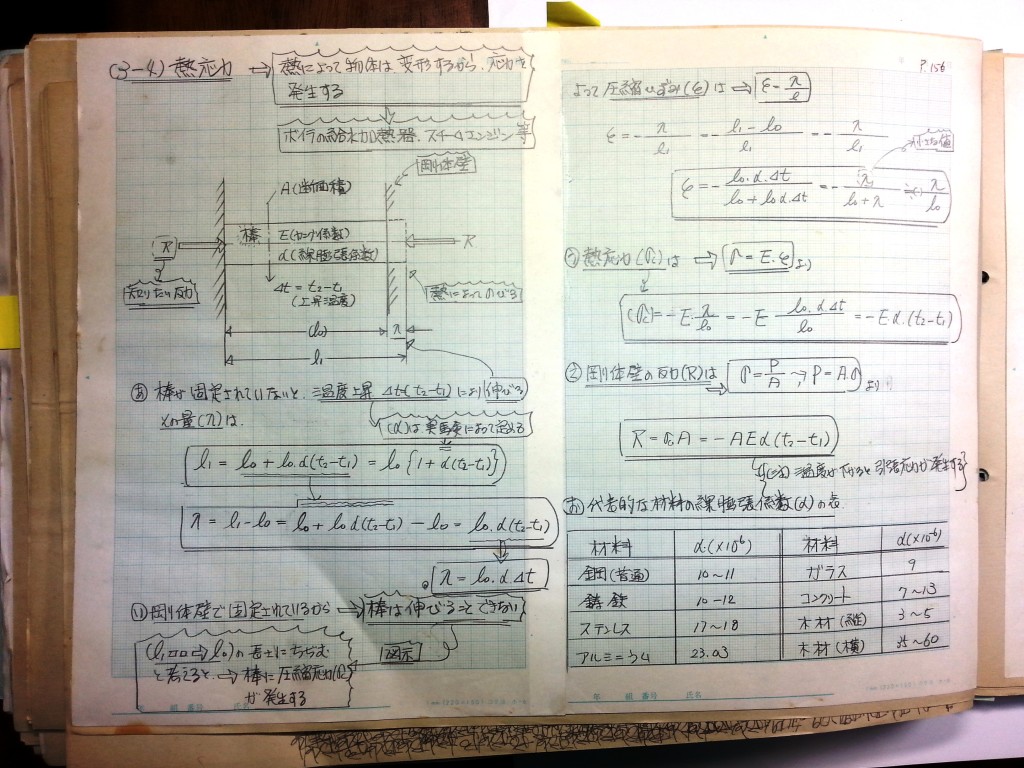 (3-4) 熱応力 → 熱によって物体は、変形するから、応力を
発生する
ボイラの給水加熱器、スチームエンジン等
剛体壁
A(断面積)
棒 E(ヤング係数)
α(線膨張係数)
R
R
知りたい反力
Δt = t2-t1
(上昇温度)
熱によってのびる
(l0) λ
l1
棒が固定されていないと、温度上昇 Δt(t2-t1)により伸びる
その量(λ)は、
(α)は実験によって定める
l1 = l0 + l0.α(t2-t1) = l0 {1+α(t2-t1)}
λ = l1-l0 = l0 + l0 α(t2-t1) - l0 = l0.α(t2-t1)
λ = l0.α Δt
剛体壁で固定されているから → 棒は伸びることできない
(l1 ⇒ l0)の長さにちぢむ
図示
と考えると → 棒に圧縮応力
が発生する
P.156
よって圧縮ひずみ(ε)は ⇒ ε=-λ/l
ε = -λ/l1 = -(l1-l0)/l1 = -λ/l1
ε = -(l0.α.Δt)/(l0+l0α.Δt) = -λ/(l0+λ) ≒ λ/l0
熱応力(σ)は ⇒ σ=E.ε より
(σ) = -E.λ/l0 = -E (l0.α.Δt)/l0 = -E.α.(t2-t1)
剛体壁の反力(R)は σ=P/A → P=A.σ より
R = σA = -AEα(t2-t1)
温度が下ると引張応力が発生する
代表的な材料の線膨張係数(α)の表.
材料 α(×10-6) 材料 α(×10-6)
鋼(普通) 10~11 ガラス 9
鋳鉄 10-12 コンクリート 7~13
ステンレス 17~18 木材(縦) 3~5
アルミニウム 23.03 木材(横) 35~60
年 組 番号 氏名
年 組 番号 氏名